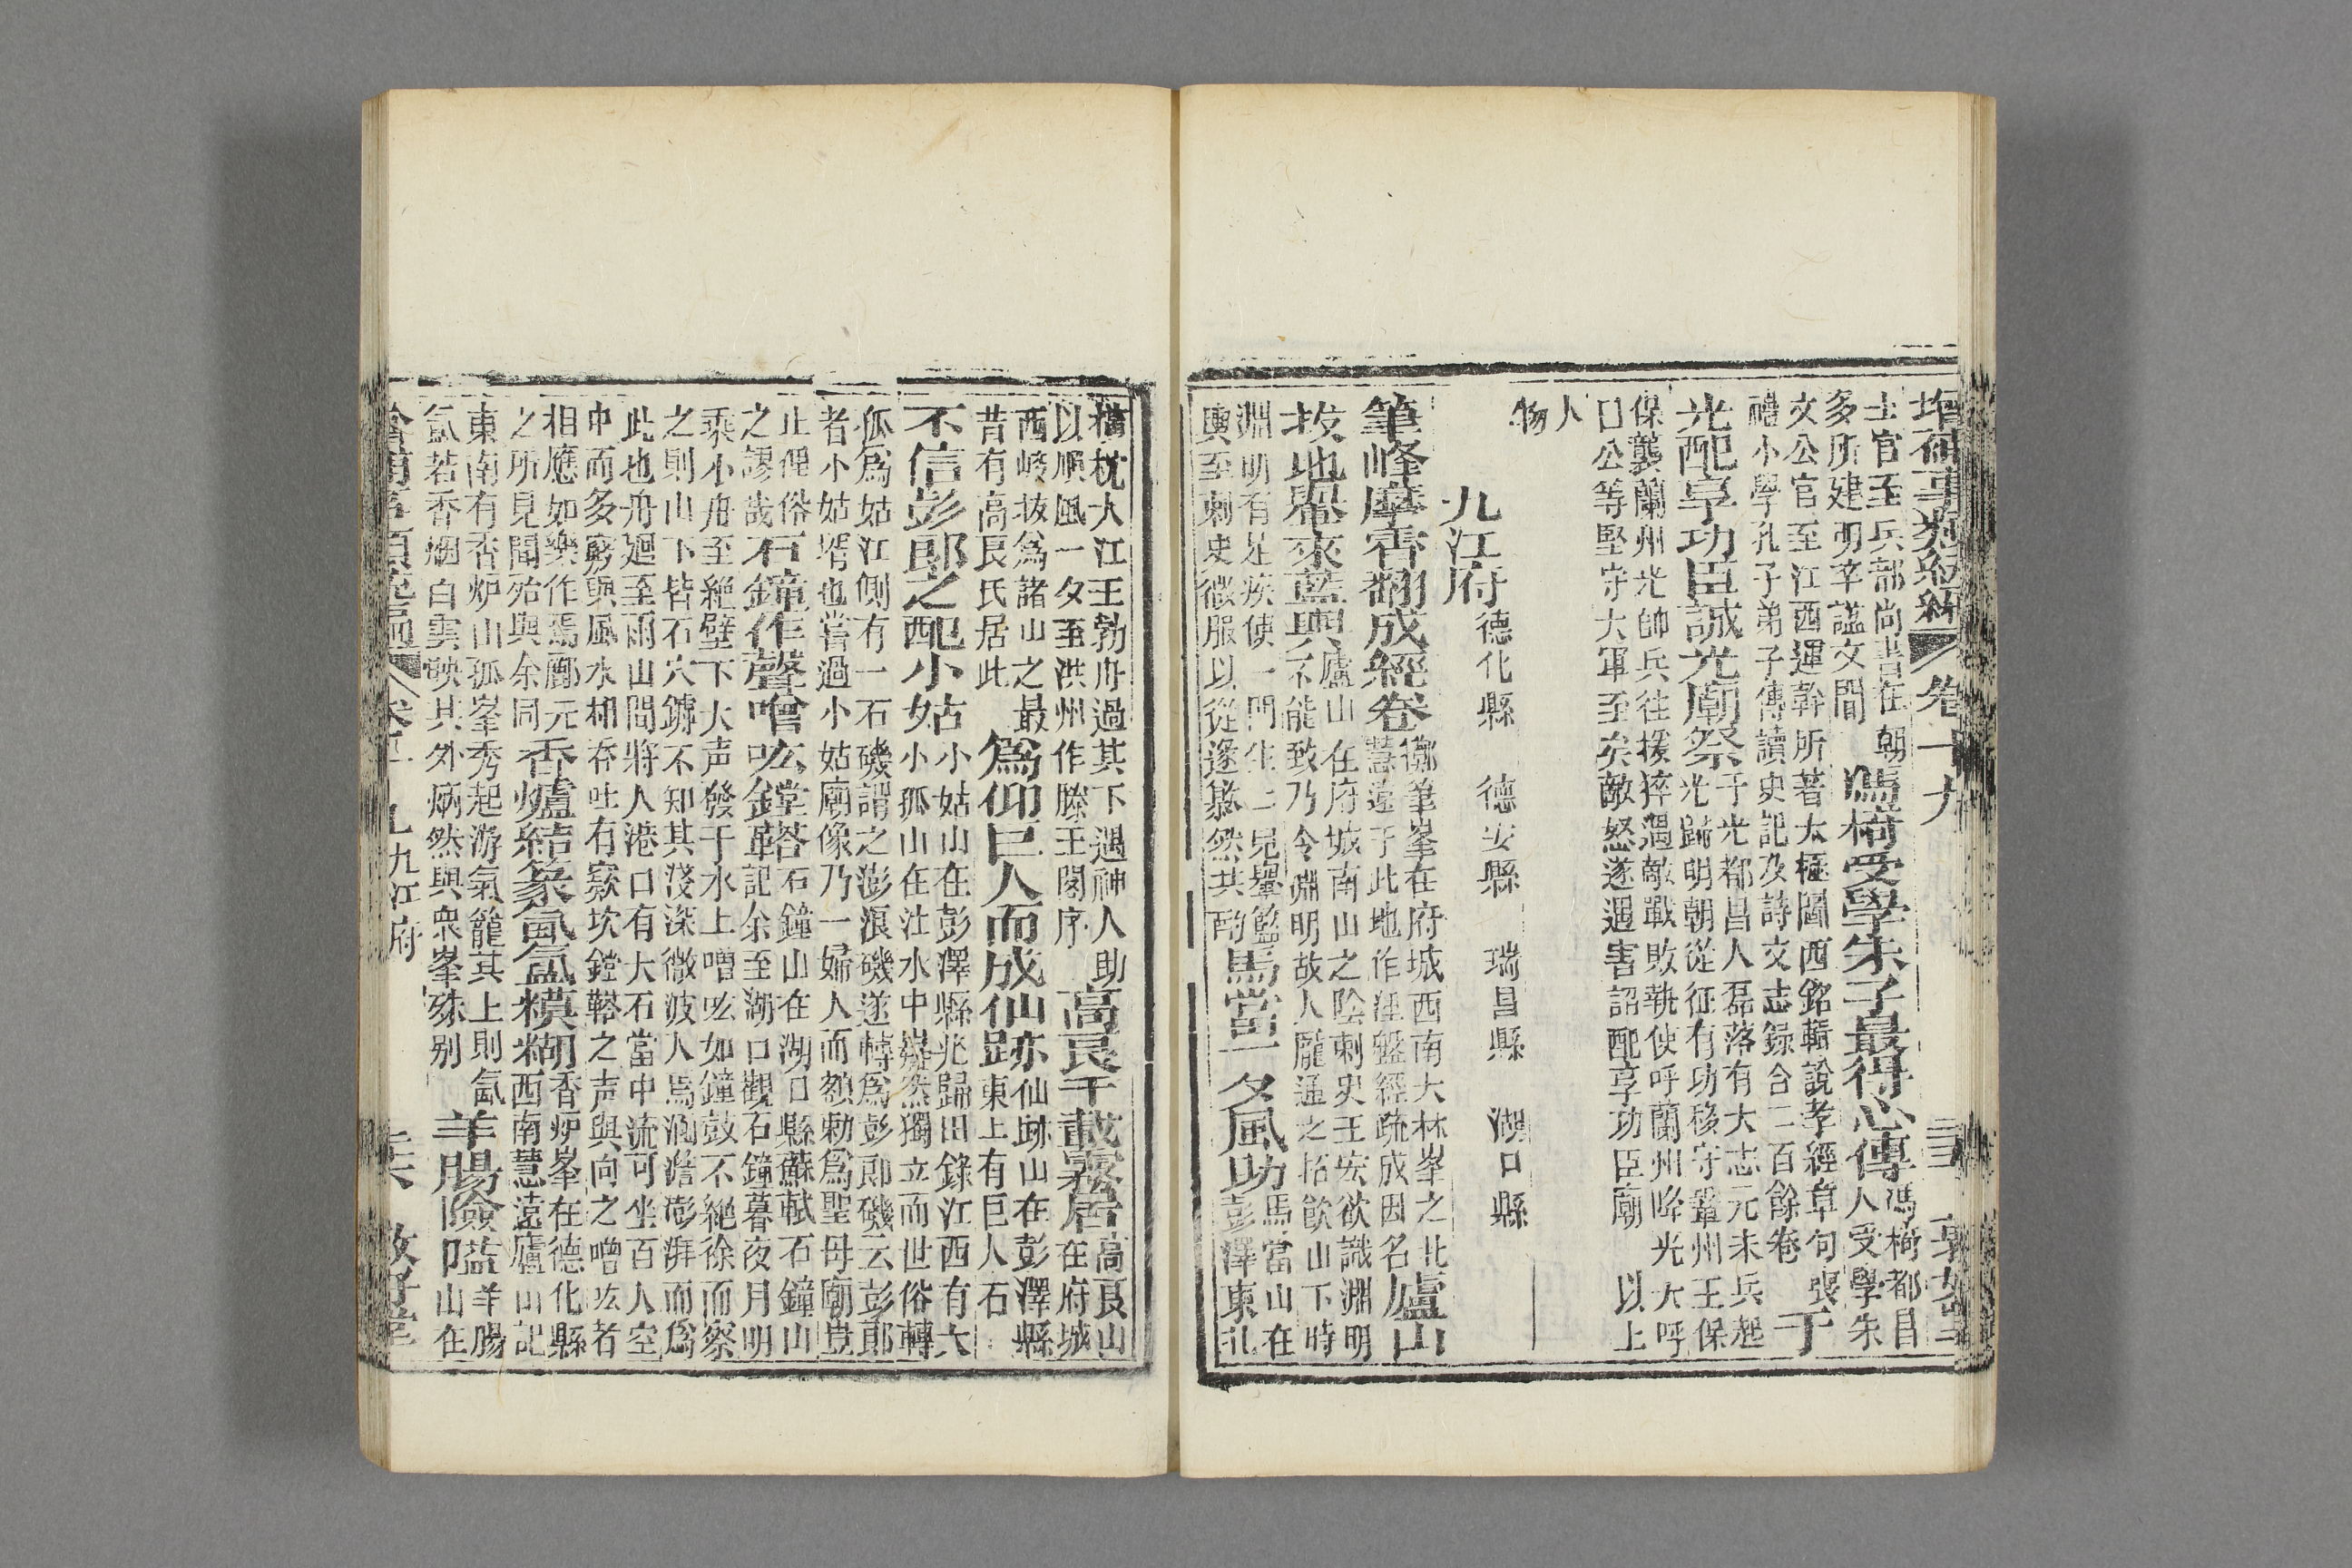 增補事類統編 卷一九
士官至兵部尚書在朝
多所建明卒謚文簡
馮椅受學朱子最得心傳
馮椅都昌
人受學朱
文公官至江西運幹所著太極圖西銘輯說孝經章句喪
禮小學孔子弟子傳讀史記及詩文志錄合二百餘卷
于
光配享功臣誠光廟祭
于光都昌人磊落有大志元末兵起
光歸明朝從征有功移守鞏州王保
保襲蘭州光帥兵往援猝遇敵戰敗執使呼蘭州降光大呼
口公等堅守大軍至矣敵怒遂遇害詔配享功臣廟 以上
人
物
九江府 德化縣 德安縣 瑞昌縣 湖口縣
筆峰摩霄翻成經卷
擲筆峯在府城西南大林峯之北
慧遠于此地作涅盤經疏成因名
廬山
拔地舁來藍輿
廬山在府城南山之陰刺史王宏欲識淵明
不能致乃令淵明故人龐通之招飲山下時
淵明有足疾使一門生二兒轝籃
輿至刺史微服以從遂歡然共酌
馬當一夕風助
馬當山在
彭澤東北
橫枕大江王勃舟過其下遇神人助
以順風一夕至洪州作滕王閣序
高良千載裳居
高良山
在府城
西峻拔爲諸山之最
昔有高良氏居此
爲仰巨人而成仙跡
仙跡山在彭澤縣
東上有巨人石
不信彭郎之配小姑
小姑山在彭澤縣北歸田錄江西有大
小孤山在江水中嶷然獨立而世俗轉
孤爲姑江側有一石磯謂之澎浪磯遂轉爲彭郎磯云彭郎
者小姑壻也嘗過小姑廟像乃一婦人而額勅爲聖母廟豈
止俚俗
之謬哉
石鐘作聲噌吰鏜鞳
石鐘山在湖口縣蘇軾石鐘山
記余至湖口觀石鐘暮夜月明
乘小舟至絕壁下大声發于水上噌吰如鐘鼓不絕徐而察
之則山下皆石穴罅不知其淺深微波入焉涵澹澎湃而爲
此也舟廻至兩山間將入港口有大石當中流可坐百人空
中而多竅與風水相吞吐有窾坎鏜鞳之声與向之噌吰者
相應如樂作焉酈元
之所見聞殆與余同
香爐結篆氤氳模糊
香炉峯在德化縣
西南慧遠廬山記
東南有香炉山孤峯秀起游氣籠其上則氤
氳若香烟白雲映其外炳然與衆峯殊别
羊腸險隘
羊腸
山在
九江府